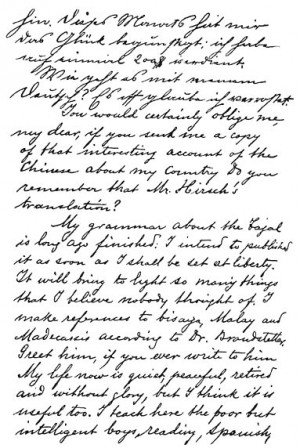 hin. Dieses Monats hat mir
das Glück begünstigt: ich habe
auf einmal 200$ verdient.
Wie geht es mit meinem
Deutsch? Es ist, glaube ich
You would certainly oblige me,
my dear, if you send me a copy
of that interesting account of the
Chinese about my Country do you
remember that Mr. Hirsch's
translation?
My grammar about the Tagal
is long ago finished. I intend to published
it as soon as I shall be set at liberty.
It will bring to light so many things
that I believe nobody thought of. I
make references to bisaya, Malay, and
Madecassis according to Dr. Brandstetter.
Greet him, if you ever write to him
My life now is quiet, peaceful, retired
and without glory, but I think it is
useful too. I teach here the poor but
intelligent boys, reading, Spanish,